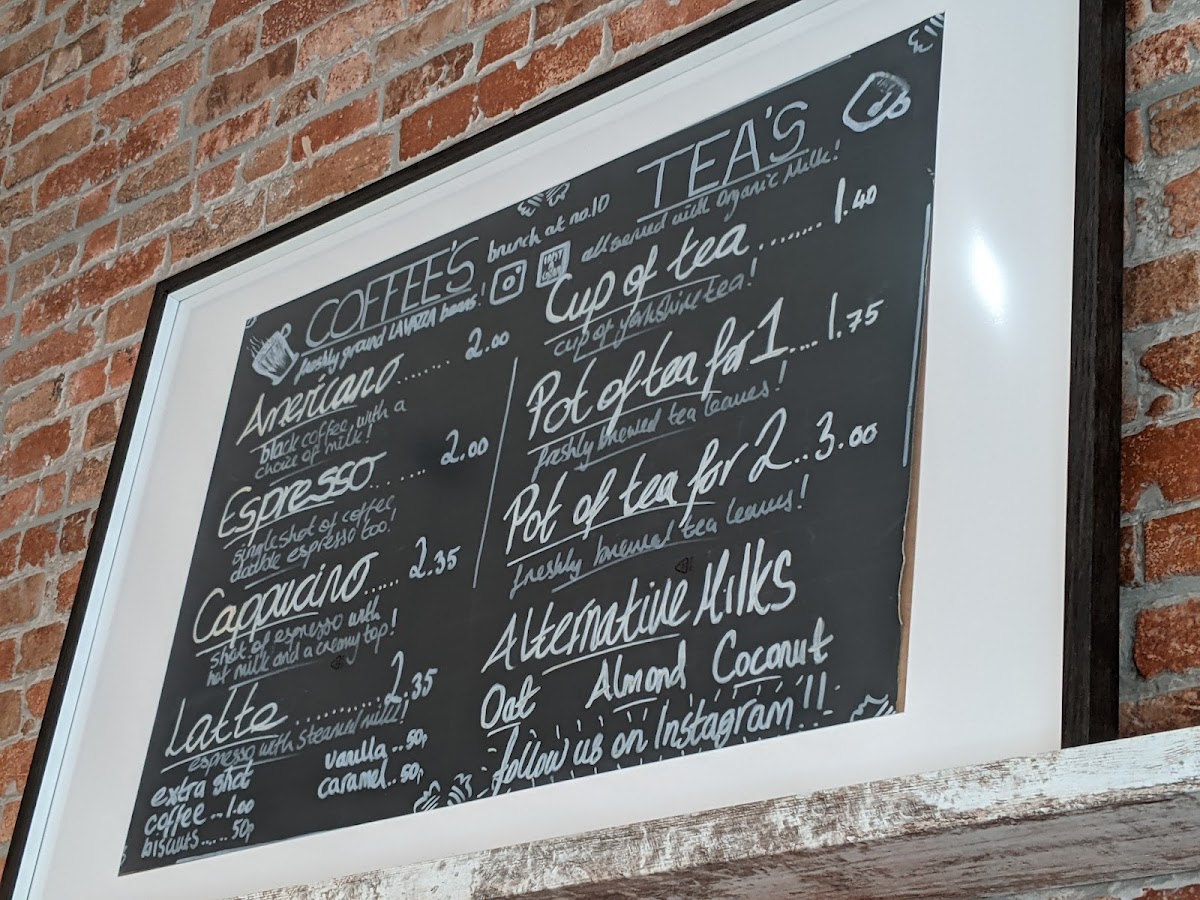 COFFEE'S
freshly ground LAVAZZA beans!
brunch at no.10
Americano....... 2.00
black coffee, with a
choice of milk!
Espresso....... 2.00
single shot of coffee,
double espresso too!
Cappucino..... 2.35
shot of espresso with
hot milk and a creamy top!
Latte............ 2.35
espresso with steamed milk!
extra shot
coffee...1.00
biscuits.....50p
vanilla...50p
caramel..50p
TEA'S
all served with Organic Milk!
Cup of tea......... 1.40
cup of yorkshire tea!
Pot of tea for 1.... 1.75
freshly brewed tea leaves!
Pot of tea for 2.. 3.00
freshly brewed tea leaves!
Alternative Milks
Oat Almond Coconut
follow us on Instagram!!